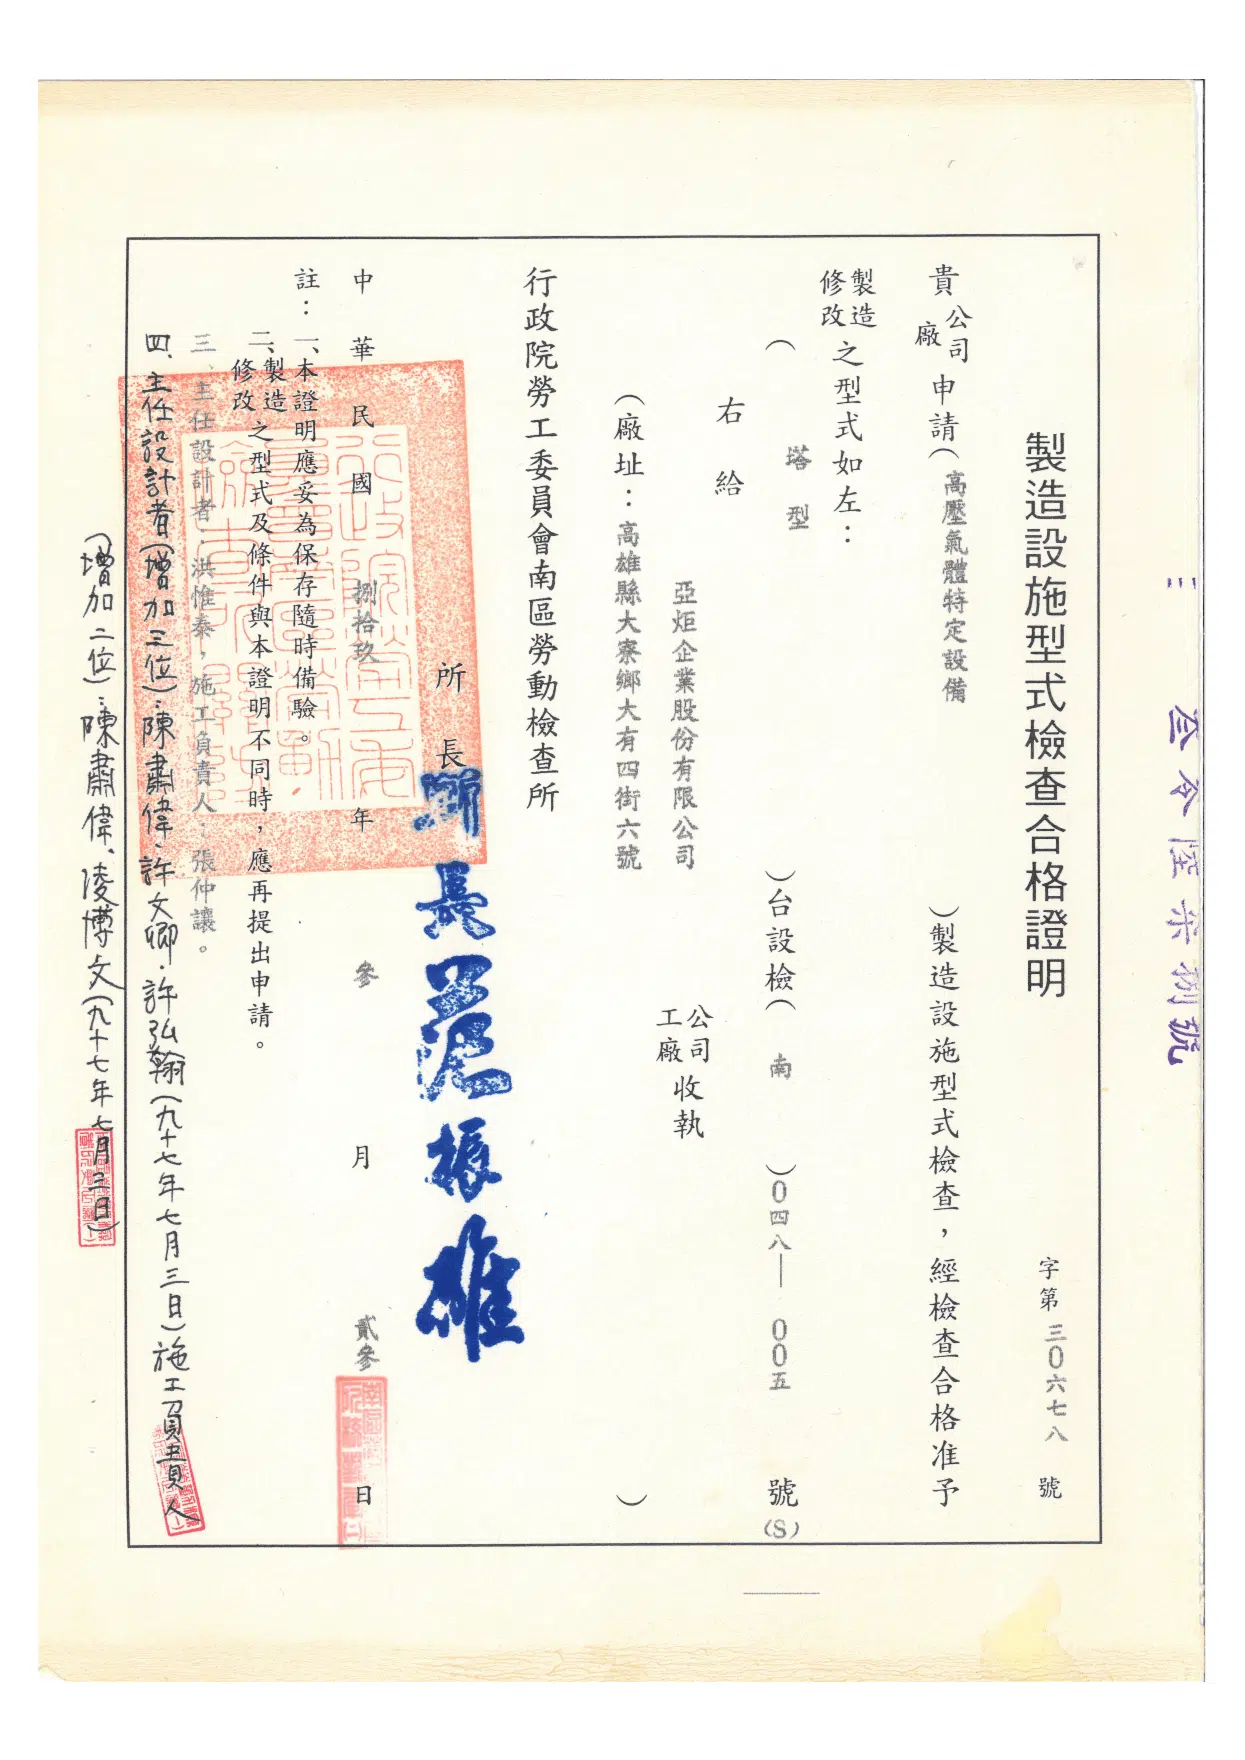 製造設施型式檢查合格證明
字第三0六七八號
貴公司廠申請(高壓氣體特定設備)製造設施型式檢查，經檢查合格准予
製造修改之型式如左：
(塔型)台設檢(南)0四八—00五號(S)
右給
亞炬企業股份有限公司 公司工廠收執
(廠址：高雄縣大寮鄉大有四街六號)
行政院勞工委員會南區勞動檢查所
所長
所長范振雄
中華民國捌拾玖年參月貳參日
註：一、本證明應妥為保存隨時備驗。
二、製造修改之型式及條件與本證明不同時，應再提出申請。
三、主任設計者：洪惟泰，施工負責人：張仲讓。
四、主任設計者(增加三位)：陳肅偉、許文卿、許弘翰(九十七年七月三日)施工負責人
(增加二位)：陳肅偉、凌博文(九十七年七月三日)